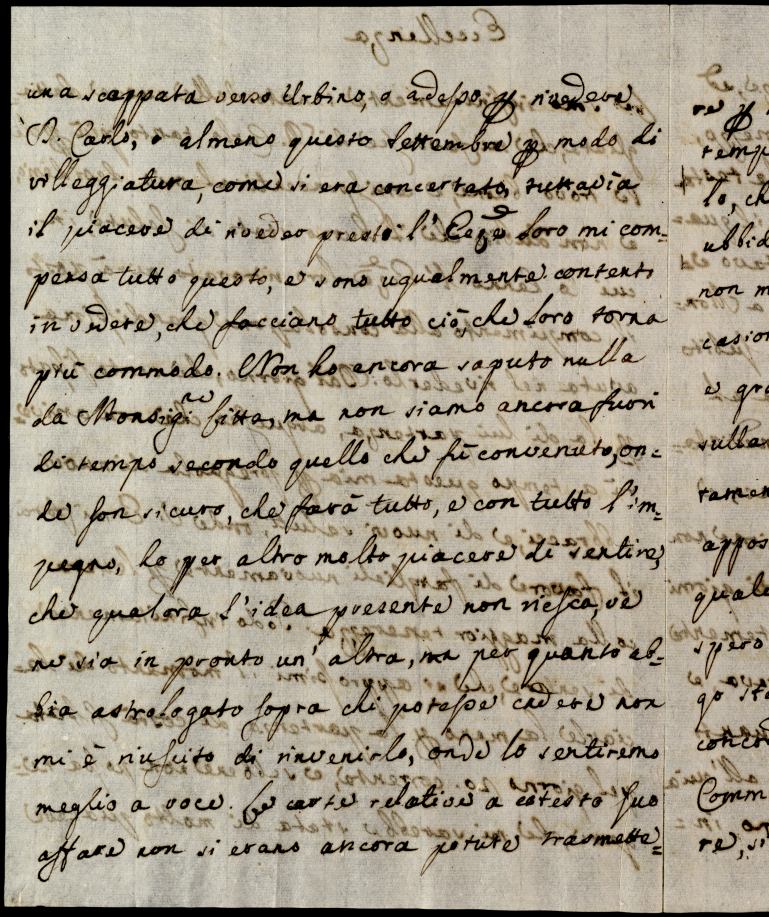 una scappata verso Urbino, o adesso, p rivedere
D. Carlo, o almeno questo Settembre p modo di
villeggiatura, come si era concertato, tuttavia
il piacere di riveder presto l'Ecze Loro mi com=
pensa tutto questo, e sono ugualmente contento
in vedere, che facciano tutto ciò, che Loro torna
più commodo. Non ho ancora saputo nulla
da Monsigre Sitta, ma non siamo ancora fuori
di tempo secondo quello che fù convenuto, on=
de son sicuro, che farà tutto, e con tutto l'im=
pegno, ho per altro molto piacere di sentire,
che qualora l'idea presente non riesca, ve
ne sia in pronto un'altra, ma per quanto ab=
bia astrologato sopra chi potesse cadere non
mi è riuscito di rinvenirlo, onde lo sentiremo
meglio a voce. Le carte relative a cotesto suo
affare non si erano ancora potute trasmette=
re p
temp
lo, ch
ubbid
non m
casion
e gra
sulla
tamen
appos
quale
spero
go sta
concor
Comm
re, si